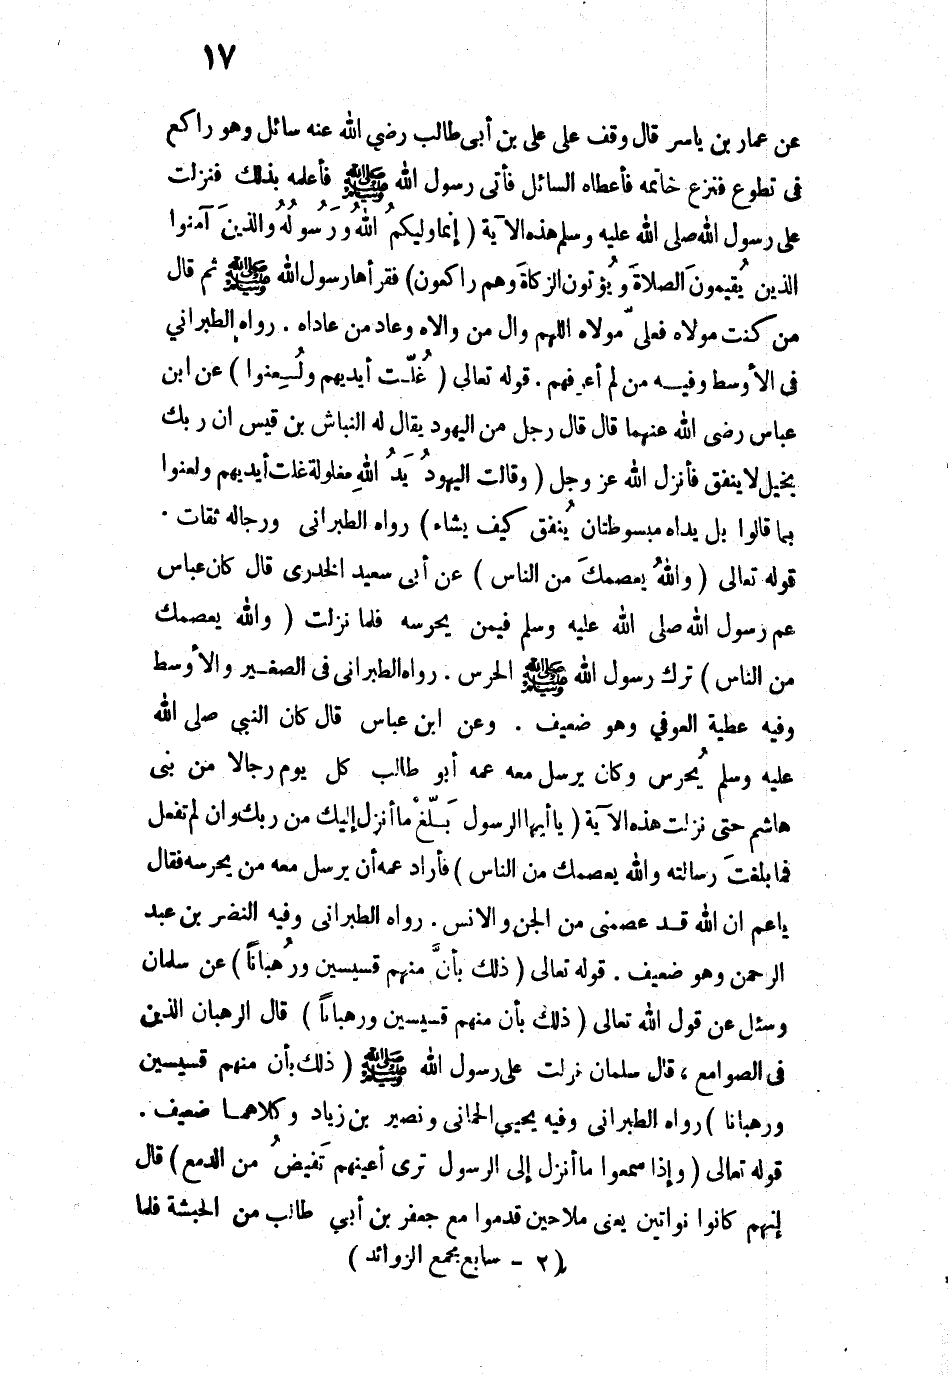 ١٧
عن عمار بن ياسر قال وقف على على بن أبى طالب رضي الله عنه سائل وهو راكع
فى تطوع فنزع خاتمه فأعطاه السائل فأتى رسول الله ﷺ فأعلمه بذلك فنزلت
على رسول الله صلى الله عليه وسلم هذه الآية ( إنما وليكمُ اللهُ وَرَسُولُهُ والذينَ آمنوا
الذين يُقيمونَ الصلاةَ ويُؤتون الزكاةَ وهم راكعون) فقرأها رسول الله ﷺ ثم قال
من كنت مولاه فعلىّ مولاه اللهم وال من والاه وعاد من عاداه . رواه الطبراني
فى الأوسط وفيه من لم أعرفهم . قوله تعالى ( غُلّت أيديهم ولُعِنوا ) عن ابن
عباس رضى الله عنهما قال قال رجل من اليهود يقال له النباش بن قيس ان ربك
بخيل لا ينفق فأنزل الله عز وجل ( وقالت اليهودُ يَدُ اللهِ مغلولة غلت أيديهم ولعنوا
بما قالوا بل يداه مبسوطتان يُنفق كيف يشاء ) رواه الطبرانى ورجاله ثقات .
قوله تعالى ( واللهُ يعصمكَ من الناس ) عن أبى سعيد الخدرى قال كان عباس
عم رسول الله صلى الله عليه وسلم فيمن يحرسه فلما نزلت ( والله يعصمك
من الناس ) ترك رسول الله ﷺ الحرس . رواه الطبرانى فى الصغير والأوسط
وفيه عطية العوفي وهو ضعيف . وعن ابن عباس قال كان النبي صلى الله
عليه وسلم يُحرس وكان يرسل معه عمه أبو طالب كل يوم رجالا من بنى
هاشم حتى نزلت هذه الآية ( يا أيها الرسول بَلّغْ ما أنزل إليك من ربك وان لم تفعل
فما بلغتَ رسالته والله يعصمك من الناس ) فأراد عمه أن يرسل معه من يحرسه فقال
ياعم ان الله قد عصمنى من الجن والانس . رواه الطبرانى وفيه النضر بن عبد
الرحمن وهو ضعيف . قوله تعالى ( ذلك بأنَّ منهم قسيسين ورُهباناً ) عن سلمان
وسئل عن قول الله تعالى ( ذلك بأن منهم قسيسين ورهباناً ) قال الرهبان الذين
فى الصوامع ، قال سلمان نزلت على رسول الله ﷺ ( ذلك بأن منهم قسيسين
ورهبانا ) رواه الطبرانى وفيه يحيي الحمانى ونصير بن زياد وكلاهما ضعيف .
قوله تعالى ( وإذا سمعوا ما أنزل إلى الرسول ترى أعينهم تَفيضُ من الدمع ) قال
إنهم كانوا نواتين يعنى ملاحين قدموا مع جعفر بن أبي طالب من الحبشة فلما
( ٢ - سابع مجمع الزوائد )